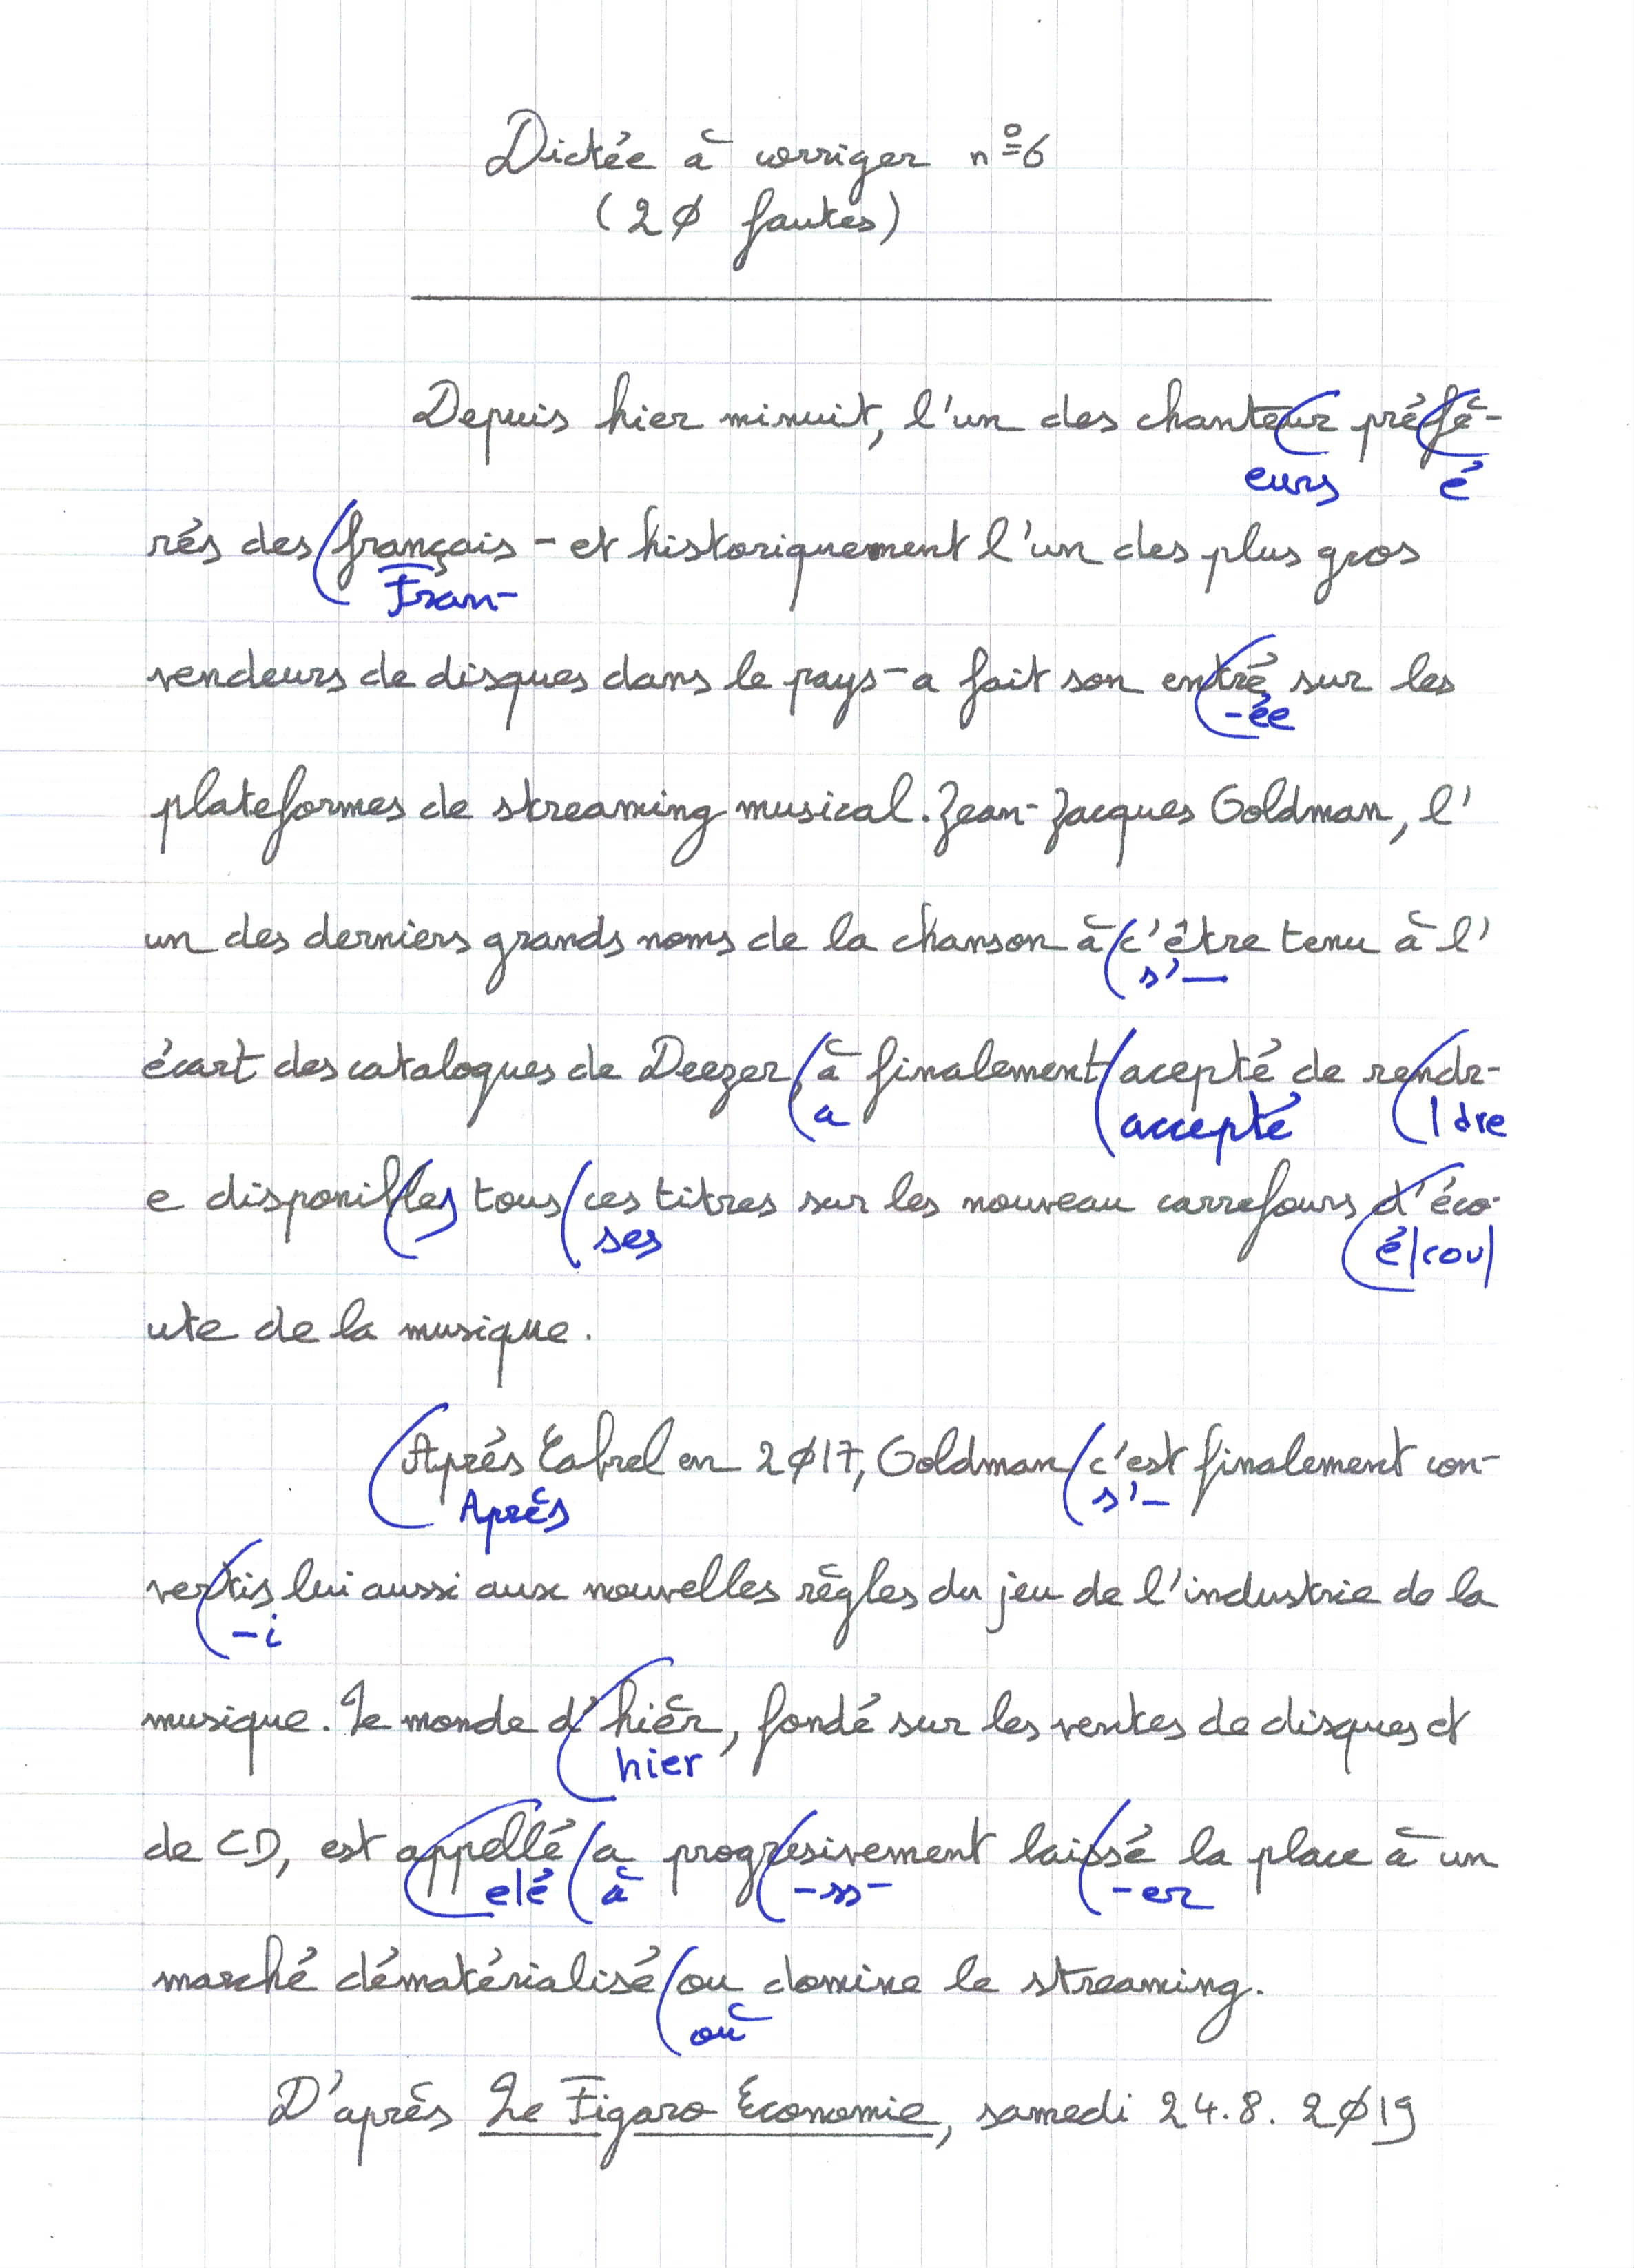 Dictée à corriger nº6
(2Ø fautes)
Depuis hier minuit, l'un des chanteur préfè-
eurs é
rés des français - et historiquement l'un des plus gros
Fran-
vendeurs de disques dans le pays - a fait son entré sur les
-ée
plateformes de streaming musical. Jean-Jacques Goldman, l'
un des derniers grands noms de la chanson à c'être tenu à l'
s'—
écart des catalogues de Deezer, à finalement acepté de rendr-
a accepté |dre
e disponibles tous ces titres sur les nouveau carrefours d'éco-
ses é|cou|
ute de la musique.
Aprés Cabrel en 2Ø17, Goldman c'est finalement con-
Après s'—
vertis lui aussi aux nouvelles règles du jeu de l'industrie de la
-i
musique. Le monde d'hièr, fondé sur les ventes de disques et
hier
de CD, est appellé a progresivement laissé la place à un
elé à -ss- -er
marché dématérialisé ou domine le streaming.
où
D'après Le Figaro Économie, samedi 24.8.2Ø19